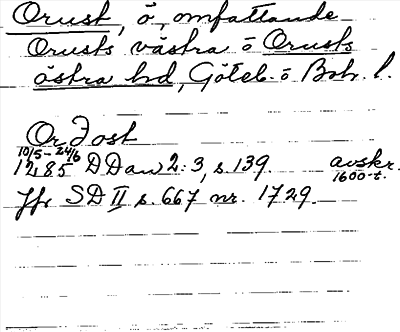 Orust, ö, omfattande
Orusts västra o Orusts
östra hd, Göteb. o Boh. l.
Or Jost
10/5-24/6
1285 DDan 2:3, s. 139. avskr.
1600-t.
Jfr SD II s. 667 nr. 1729.